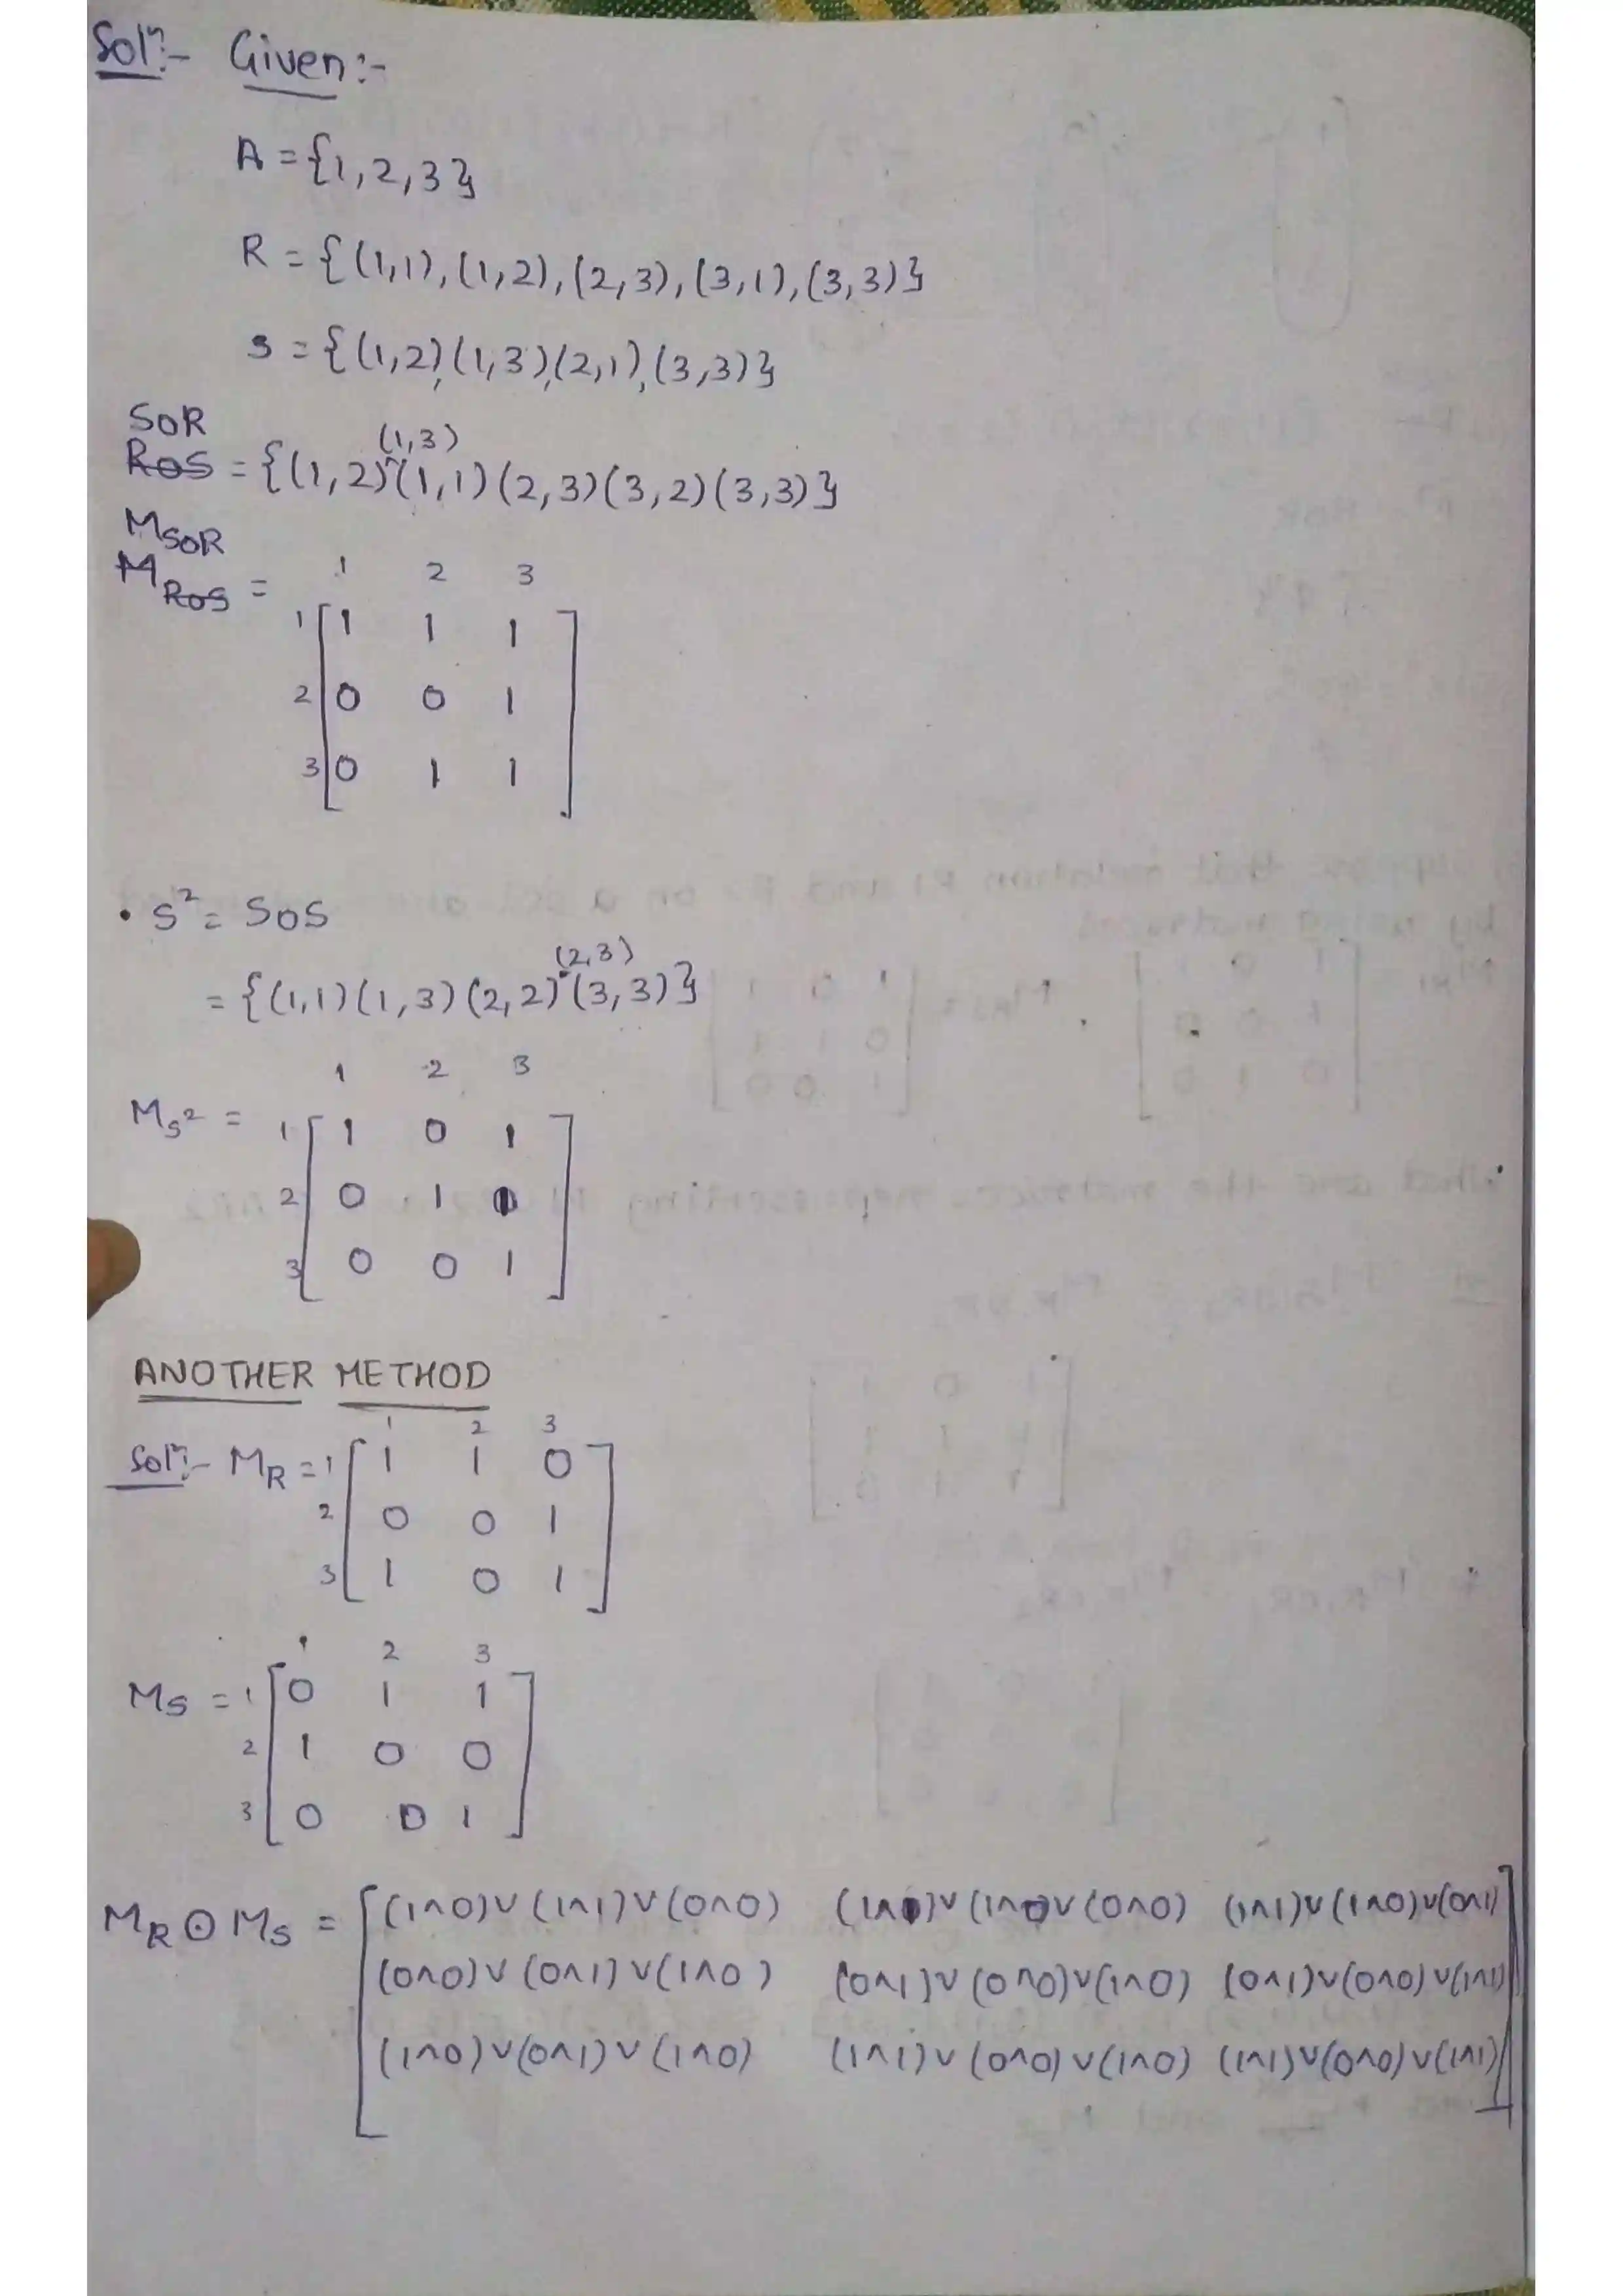 Solⁿ:- Given:-
A = {1, 2, 3}
R = {(1,1), (1,2), (2,3), (3,1), (3,3)}
S = {(1,2), (1,3), (2,1), (3,3)}
SOR
(1,3)
ROS = {(1,2) (1,1) (2,3) (3,2) (3,3)}
M SOR
M ROS =
1 2 3
1 [ 1 1 1 ]
2 0 0 1
3 0 1 1
• S² = SOS
(2,3)
= {(1,1) (1,3) (2,2) (3,3)}
1 2 3
M S² = 1 [ 1 0 1 ]
2 0 1 1
3 0 0 1
ANOTHER METHOD
1 2 3
Solⁿ:- M R = 1 [ 1 1 0 ]
2 0 0 1
3 1 0 1
1 2 3
M S = 1 [ 0 1 1 ]
2 1 0 0
3 0 0 1
M R ⊙ M S = [ (1∧0)∨(1∧1)∨(0∧0) (1∧1)∨(1∧0)∨(0∧0) (1∧1)∨(1∧0)∨(0∧1) ]
(0∧0)∨(0∧1)∨(1∧0) (0∧1)∨(0∧0)∨(1∧0) (0∧1)∨(0∧0)∨(1∧1)
(1∧0)∨(0∧1)∨(1∧0) (1∧1)∨(0∧0)∨(1∧0) (1∧1)∨(0∧0)∨(1∧1)